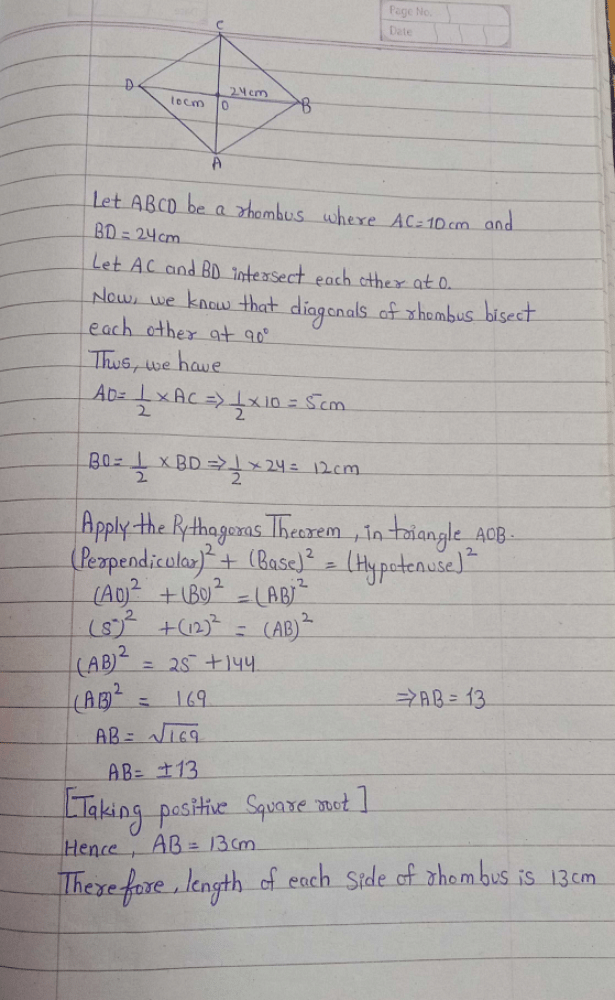 Page No.
Date
C
D
24cm
10cm
O
B
A
Let ABCD be a rhombus where AC=10cm and
BD=24cm
Let AC and BD intersect each other at O.
Now, we know that diagonals of rhombus bisect
each other at 90°
Thus, we have
AO= 1/2 × AC ⇒ 1/2 × 10 = 5cm
BO= 1/2 × BD ⇒ 1/2 × 24 = 12cm
Apply the Pythagoras Theorem, in triangle AOB.
(Perpendicular)² + (Base)² = (Hypotenuse)²
(AO)² + (BO)² = (AB)²
(5)² + (12)² = (AB)²
(AB)² = 25 + 144
(AB)² = 169 ⇒ AB = 13
AB = √169
AB = ±13
[Taking positive Square root]
Hence, AB = 13cm
Therefore, length of each side of rhombus is 13cm